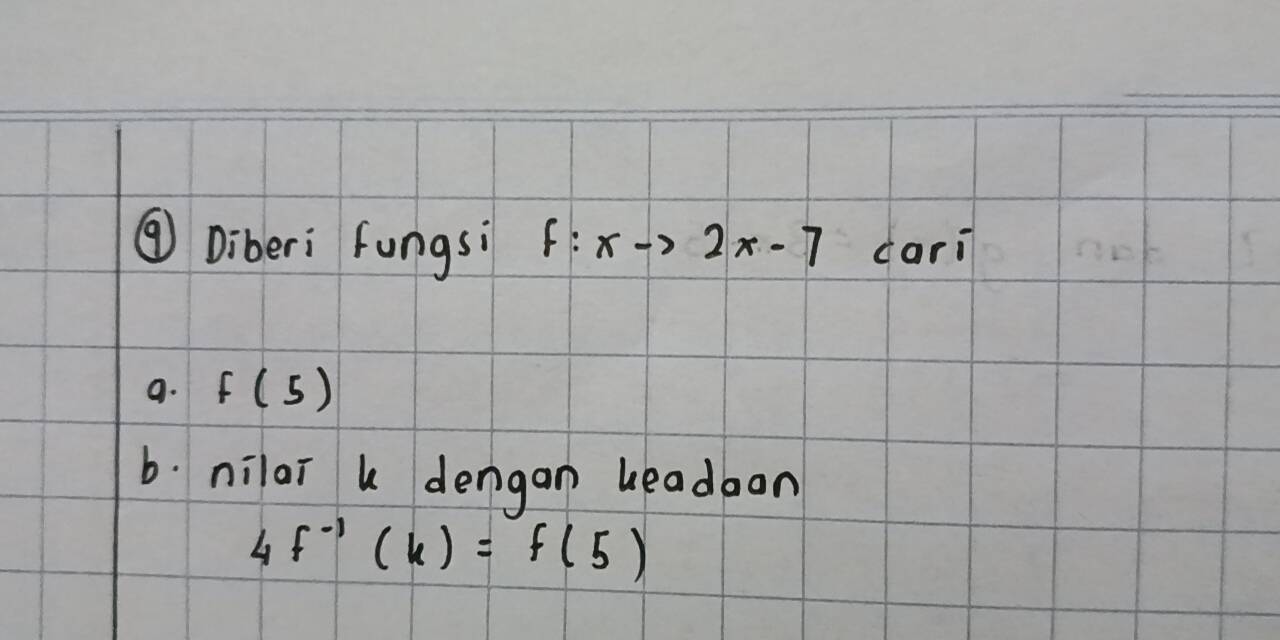 ⑨ Diberi fungsi f : x -> 2x - 7 cari
a. f(5)
b. nilai k dengan keadaan
4 f⁻¹ (k) = f(5)